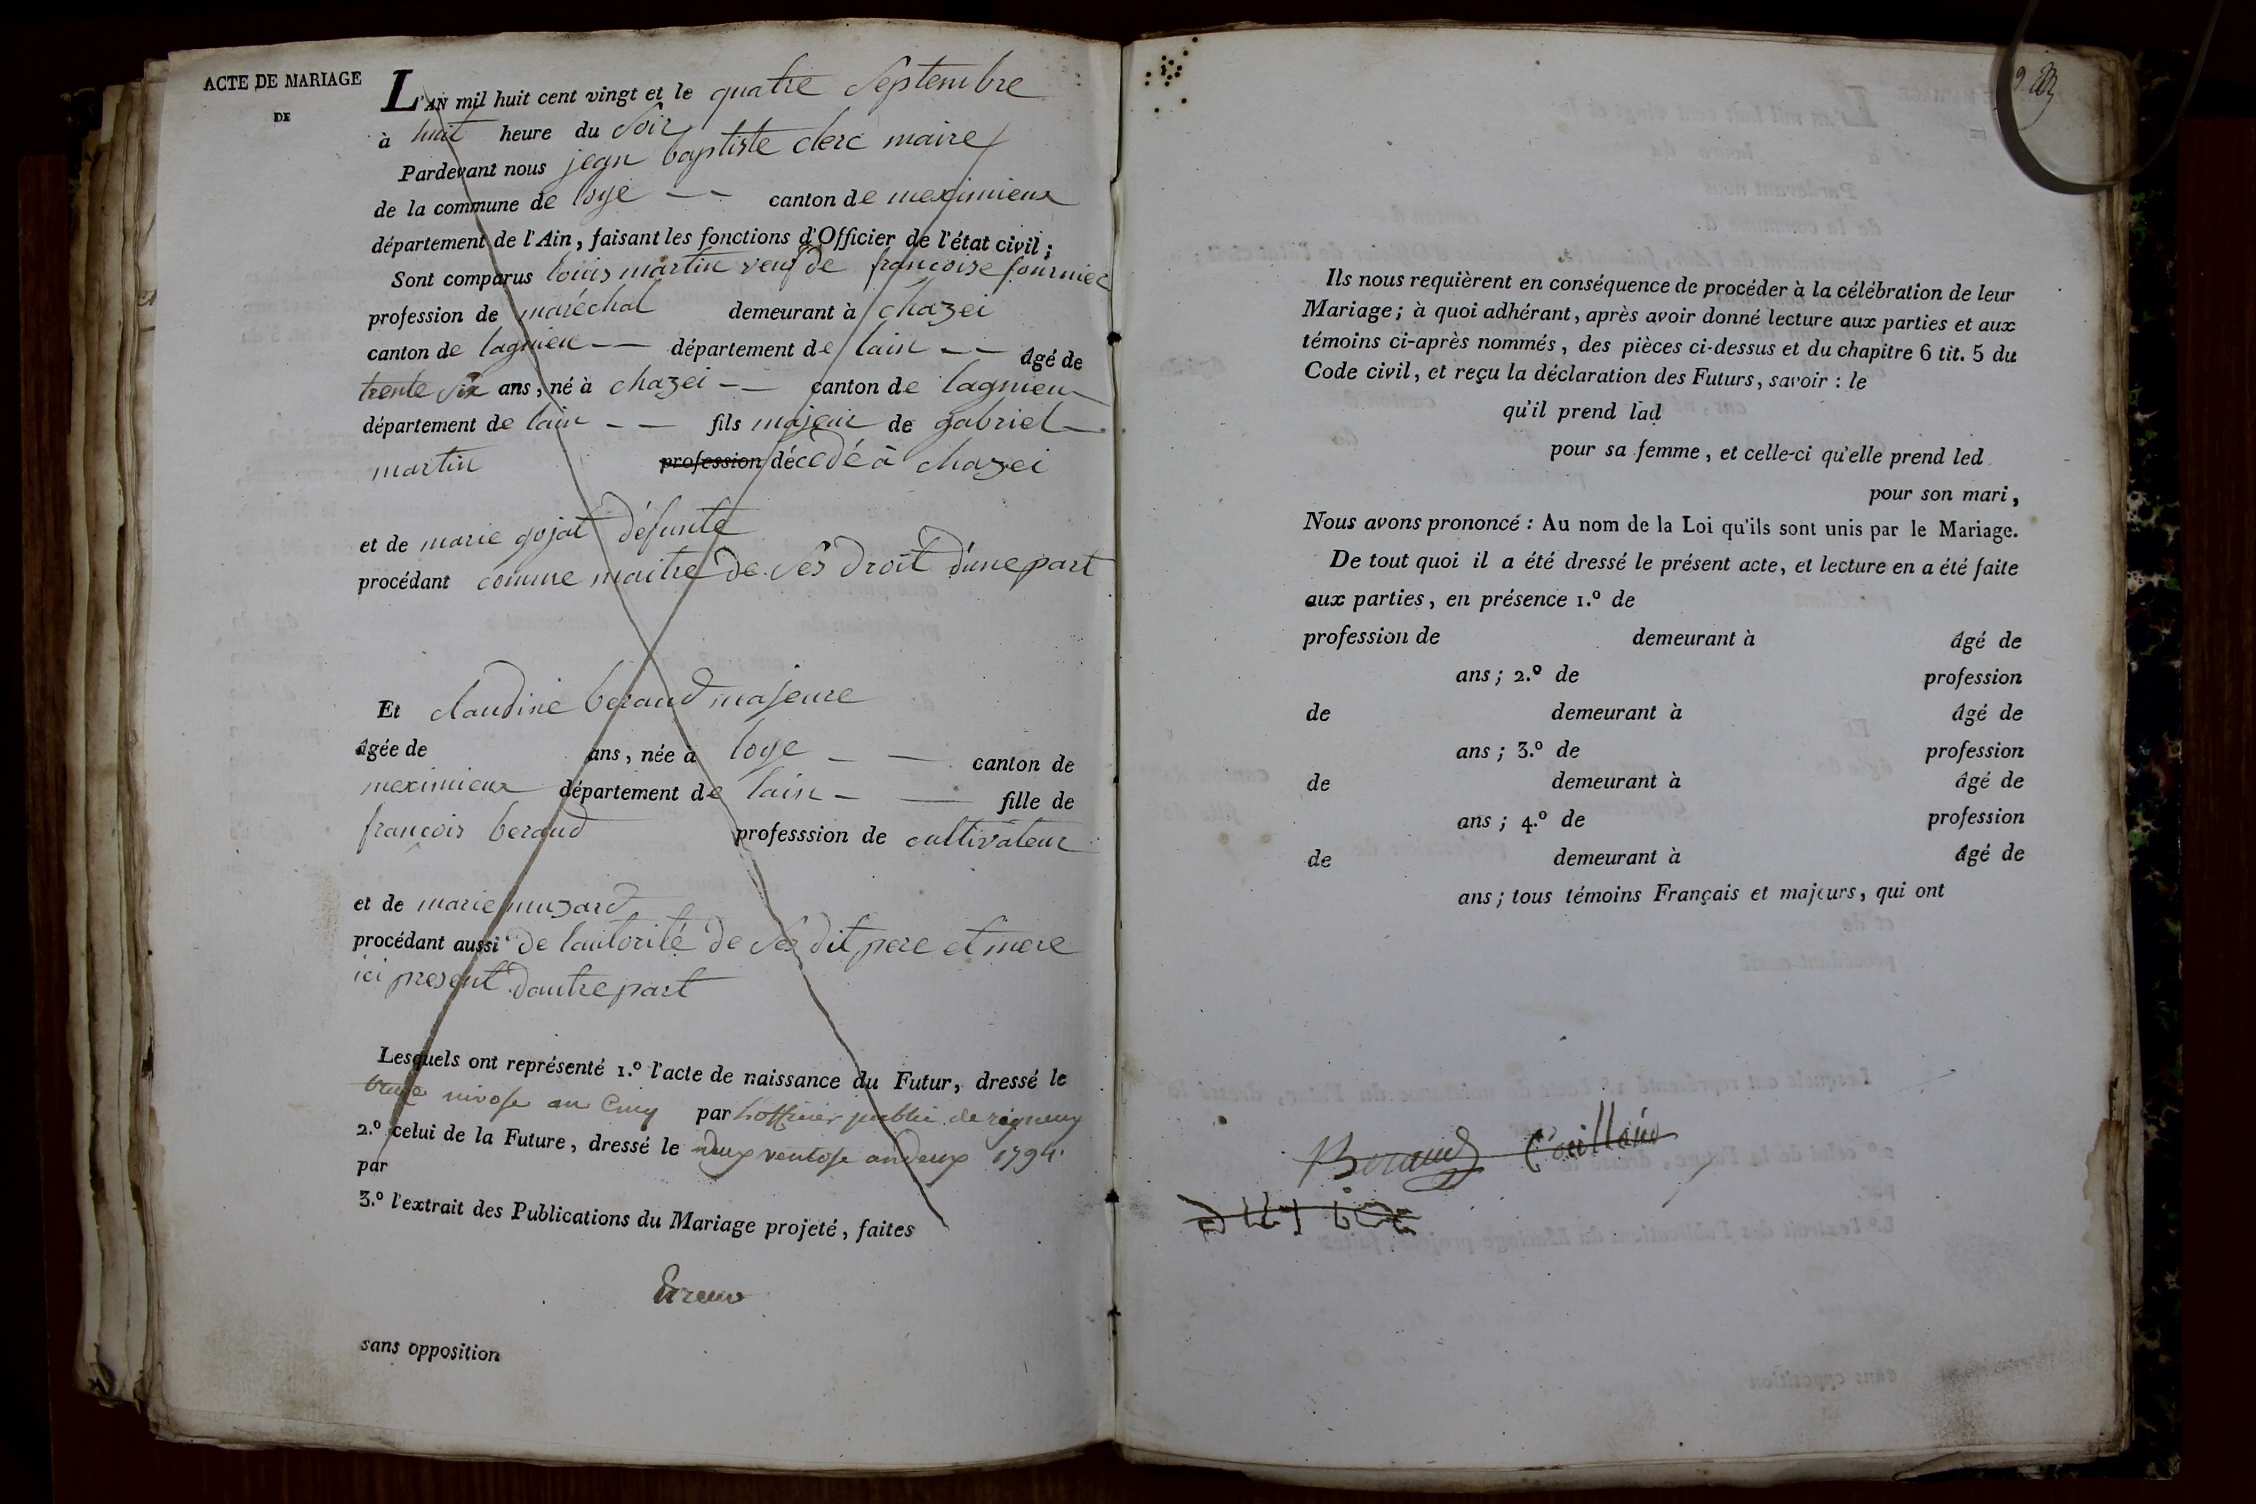 ACTE DE MARIAGE
DE
L'AN mil huit cent vingt et le quatre Septembre
à huit heure du Soir
Pardevant nous jean baptiste clerc maire
de la commune de loye — — canton de meximieux
département de l'Ain, faisant les fonctions d'Officier de l'état civil;
Sont comparus louis martin veuf de francoise fournier
profession de maréchal demeurant à chazei
canton de lagnieu — — département de lain — — âgé de
trente six ans, né à chazei — — canton de lagnieu
département de lain — — fils majeur de gabriel
martin profession décedé à chazei
et de marie gojat défunte
procédant comme maitre de Ses droit d'une part
Et claudine beraud majeure
âgée de ans, née à loye — — canton de
meximieux département de lain — — fille de
françois beraud professsion de cultivateur
et de marie muzard
procédant aussi de lautorité de Ses dit pere et mere
ici present dautre part
Lesquels ont représenté 1.º l'acte de naissance du Futur, dressé le
nivose an Cinq par Lofficier public de rigneux
2.º celui de la Future, dressé le deux ventose an deux 1794
par
3.º l'extrait des Publications du Mariage projeté, faites
Erreur
sans opposition
Ils nous requièrent en conséquence de procéder à la célébration de leur
Mariage; à quoi adhérant, après avoir donné lecture aux parties et aux
témoins ci-après nommés, des pièces ci-dessus et du chapitre 6 tit. 5 du
Code civil, et reçu la déclaration des Futurs, savoir : le
qu'il prend lad
pour sa femme, et celle-ci qu'elle prend led
pour son mari,
Nous avons prononcé : Au nom de la Loi qu'ils sont unis par le Mariage.
De tout quoi il a été dressé le présent acte, et lecture en a été faite
aux parties, en présence 1.º de
profession de demeurant à âgé de
ans; 2.º de profession
de demeurant à âgé de
ans; 3.º de profession
de demeurant à âgé de
ans; 4.º de profession
de demeurant à âgé de
ans; tous témoins Français et majeurs, qui ont
Beraud